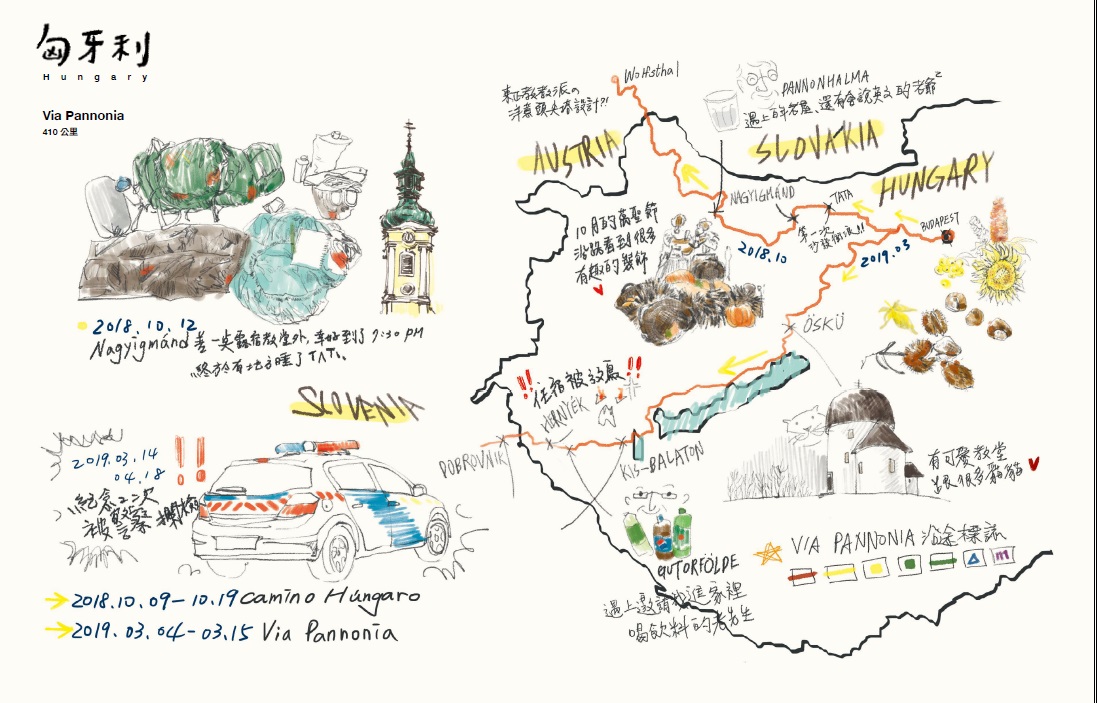 匈牙利
Hungary
Via Pannonia
410 公里
2018.10.12
Nagyigmánd 差一點露宿教堂外, 幸好到了 7:30 PM
終於有地方睡了
SLOVENIA
2019.03.14
04.18
紀念二次
被警察
2018.10.09-10.19 Camino Húngaro
2019.03.04-03.15 Via Pannonia
Wolfsthal
東正教教派の
洋蔥頭尖塔設計?!
AUSTRIA
PANNONHALMA
遇上百年老屋、還有會說英文的老爺
SLOVÁKIA
HUNGARY
NAGYIGMÁND
TATA
BUDAPEST
第一次
2018.10
2019.03
10月的萬聖節
沿路看到很多
有趣的裝飾
ÖSKÜ
!! 住宿被放鳥 !!
DOBROVNIK
KIS-BALATON
有可愛教堂
還有很多貓貓
GUTORFÖLDE
遇上邀請我進家裡
喝飲料的老先生
VIA PANNONIA 沿途標誌
m